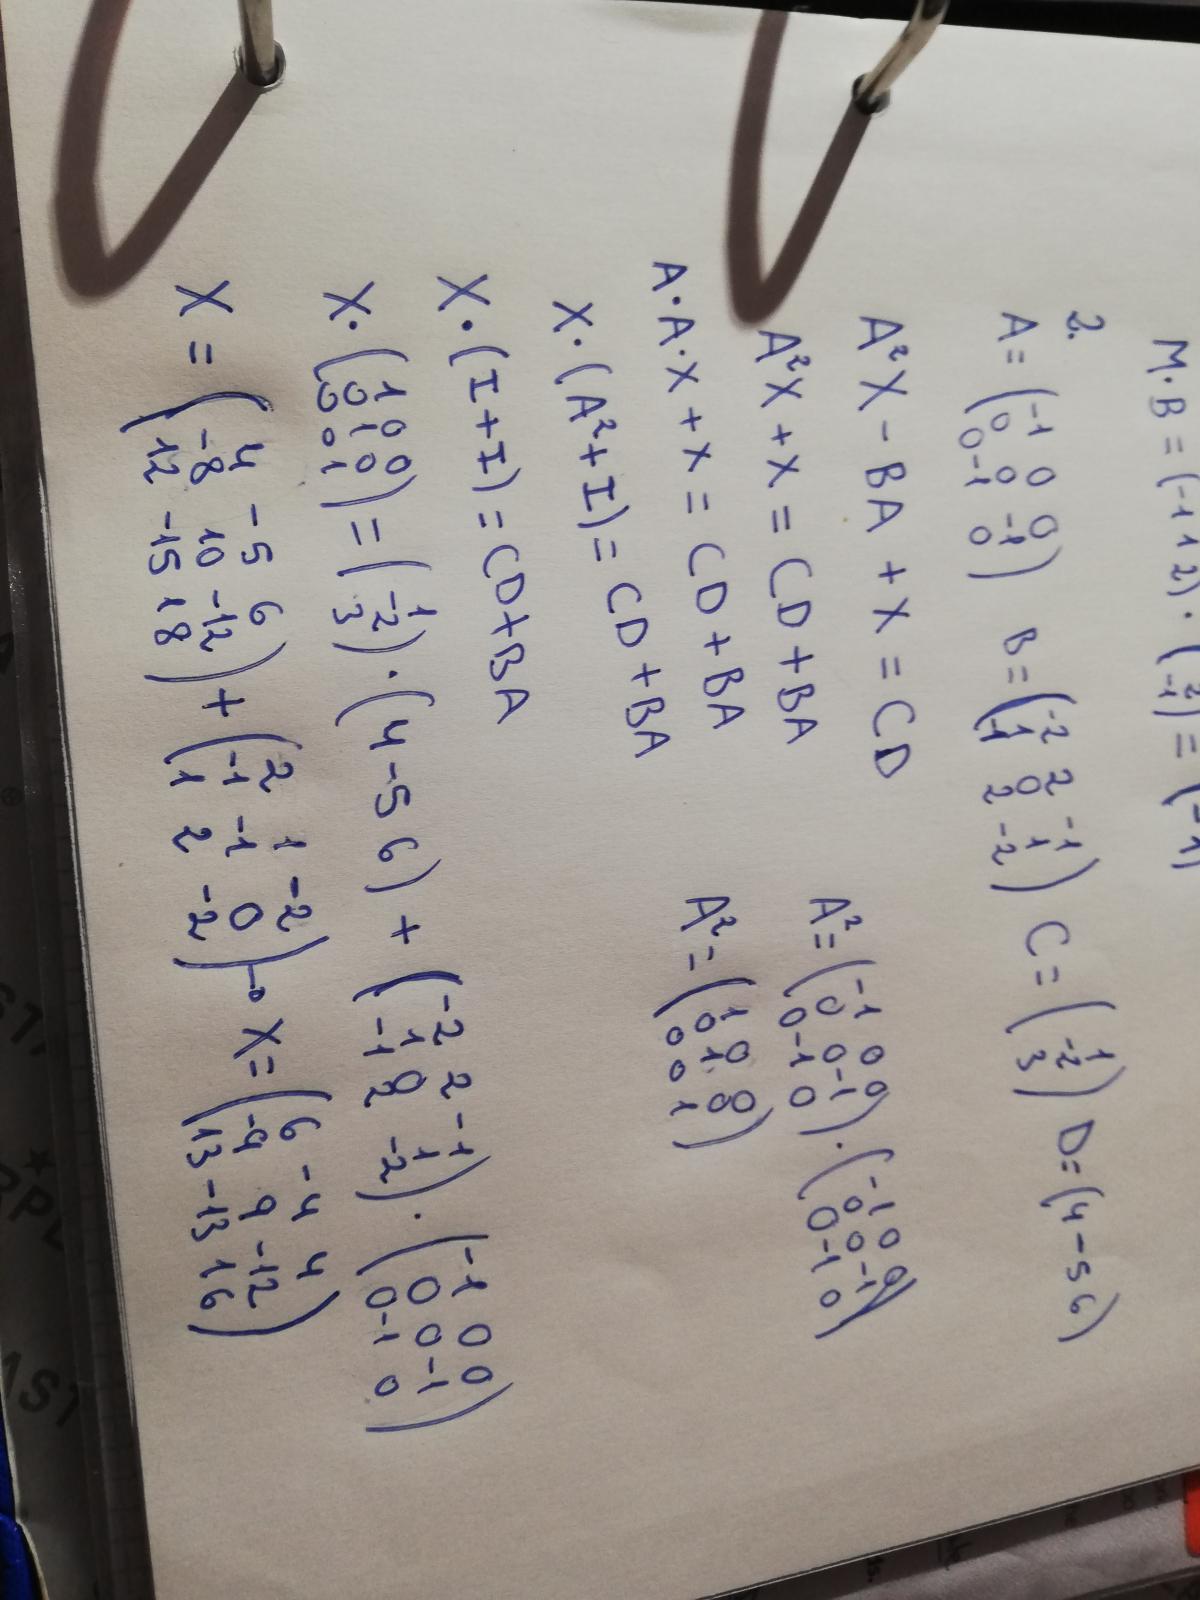 M·B = (-1 1 2) · (2 -1) = (-1)
2.
A = (-1 0 0 / 0 0 -1 / 0 -1 0) B = (-2 2 -1 / 1 0 1 / -1 2 -2) C = (1 / -2 / 3) D = (4 -5 6)
A²X - BA + X = CD
A²X + X = CD + BA
A·A·X + X = CD + BA
X·(A² + I) = CD + BA
X·(I + I) = CD + BA
A² = (-1 0 0 / 0 0 -1 / 0 -1 0) · (-1 0 0 / 0 0 -1 / 0 -1 0)
A² = (1 0 0 / 0 1 0 / 0 0 1)
X·(1 0 0 / 0 1 0 / 0 0 1) = (1 / -2 / 3) · (4 -5 6) + (-2 2 -1 / 1 0 1 / -1 2 -2) · (-1 0 0 / 0 0 -1 / 0 -1 0)
X = (4 -5 6 / -8 10 -12 / 12 -15 18) + (2 1 -2 / -1 -1 0 / 1 2 -2) → X = (6 -4 4 / -9 9 -12 / 13 -13 16)